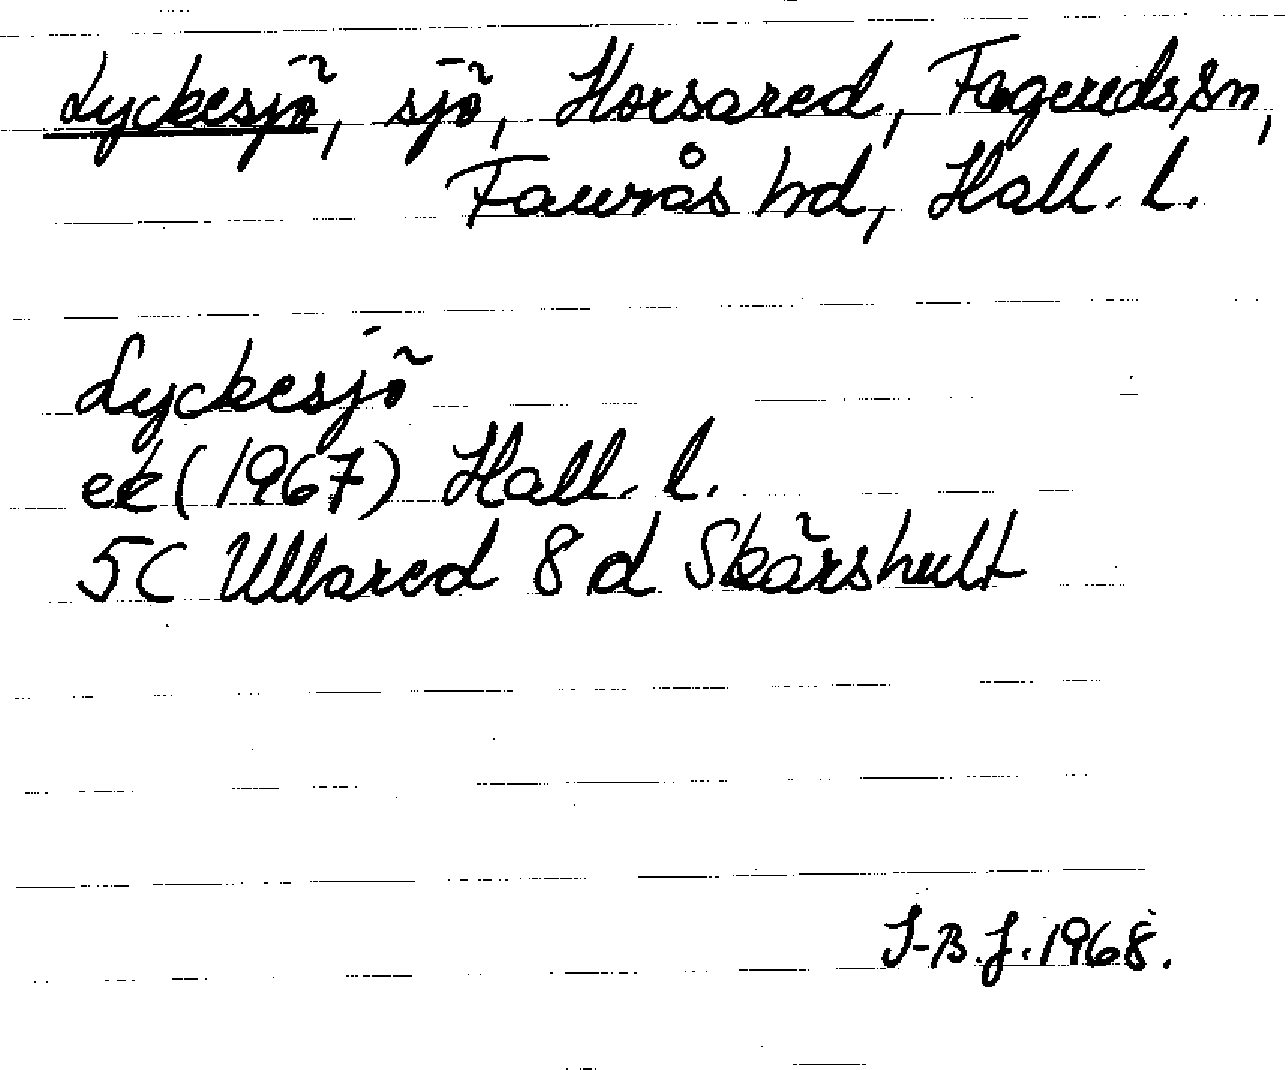 Lyckesjö, sjö, Horsared, Fagereds sn,
Faurås hd, Hall. l.
Lyckesjö
ek (1967) Hall. l.
5C Ullared 8 d Skärshult
I-B.J. 1968.